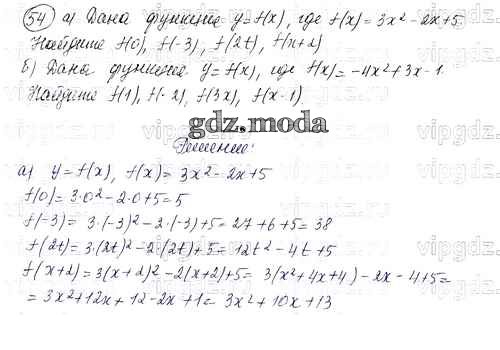 54 а) Дана функция y=f(x), где f(x)=3x²-2x+5.
Найдите f(0), f(-3), f(2t), f(x+2)
б) Дана функция y=f(x), где f(x)=-4x²+3x-1.
Найдите f(1), f(-2), f(3x), f(x-1)
gdz.moda
Решение:
а) y=f(x), f(x)=3x²-2x+5
f(0)=3·0²-2·0+5=5
f(-3)=3·(-3)²-2·(-3)+5=27+6+5=38
f(2t)=3·(2t)²-2·(2t)+5=12t²-4t+5
f(x+2)=3(x+2)²-2(x+2)+5=3(x²+4x+4)-2x-4+5=
=3x²+12x+12-2x+1=3x²+10x+13